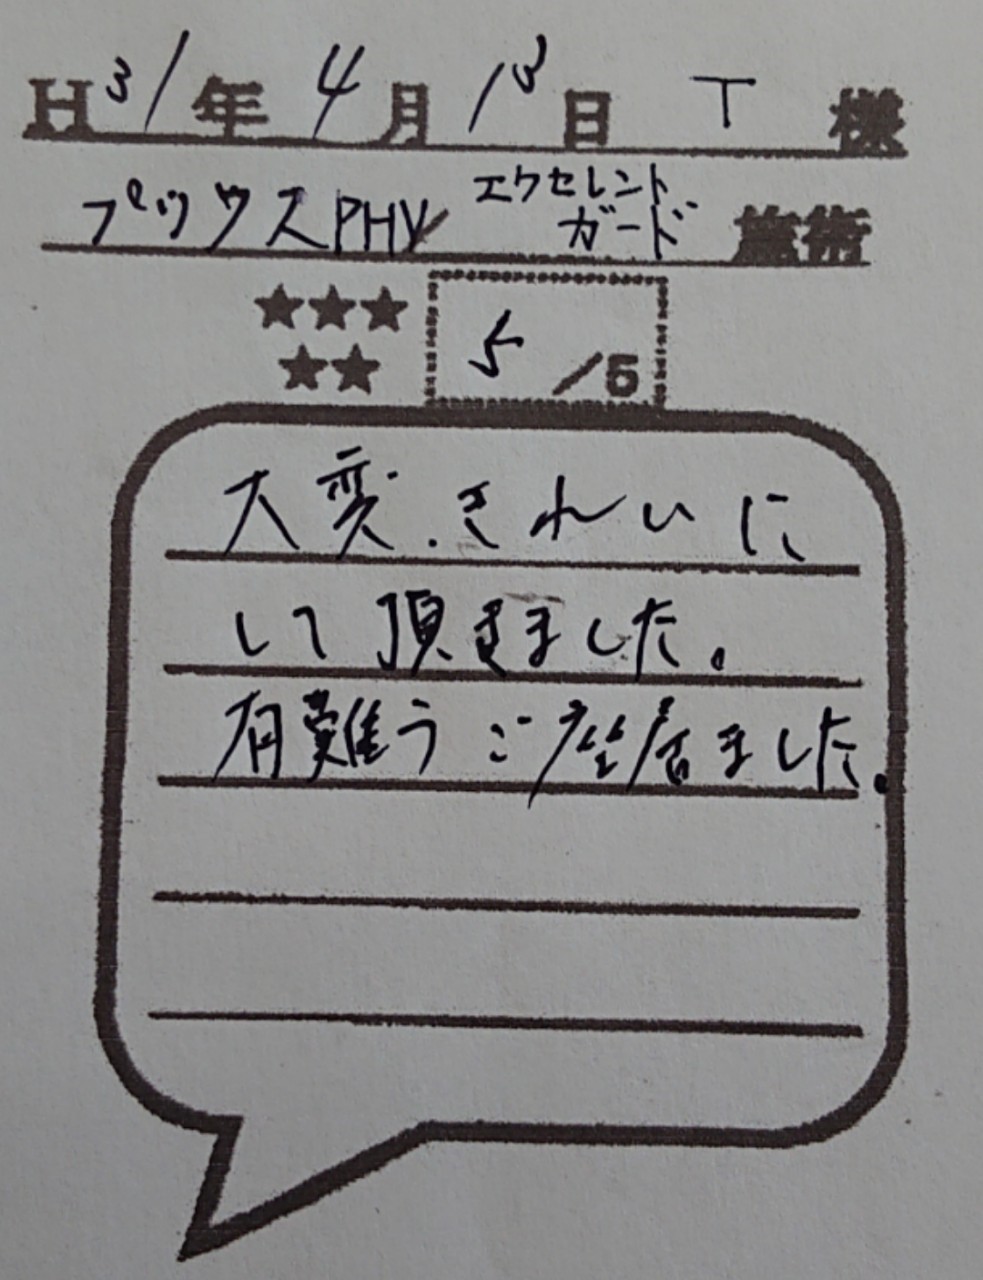 H31年4月13日 T 様
プリウスPHV エクセレントガード 施術
★★★
★★
5/5
大変.きれいに
して頂きました。
有難うご座居ました。